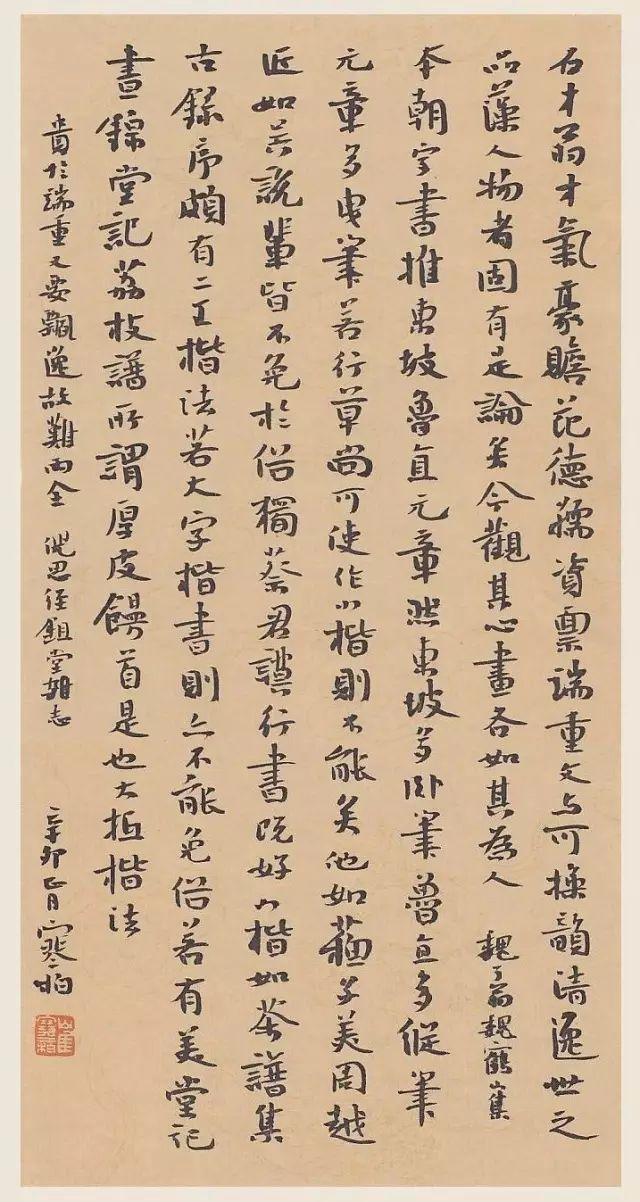 石才翁才氣豪贍范德孺資稟端重文与可操韻清逸世之
品藻人物者固有是論矣今觀其心畫各如其為人 魏了翁魏鶴山集
本朝字書推東坡魯直元章然東坡多卧筆魯直多縱筆
元章多曳筆若行草尚可使作小楷則不能矣他如蘇子美周越
近如吳說輩皆不免於俗獨蔡君謨行書既好小楷如茶譜集
古錄序頗有二王楷法若大字楷書則亦不能免俗若有美堂記
晝錦堂記荔枝譜所謂厚皮饅首是也大抵楷法
貴於端重又要飄逸故難兩全 倪思經鉏堂雜志
辛卯正月寒柏